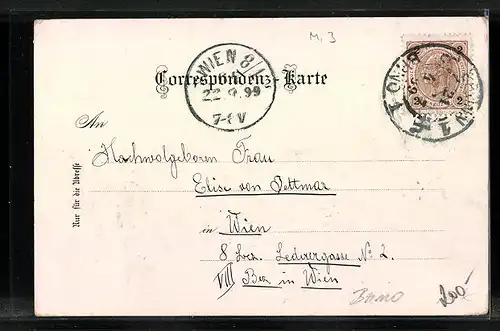 M. 3
WIEN 8/1
22.9.99
7-8 V
Correspondenz-Karte
2 2
1
An
Hochwolgeboren Frau
Elise von Dettmar
in Wien
8. Bez. Lederergasse № 2.
VIII Bez. in Wien
Nur für die Adresse
Brno
200,-